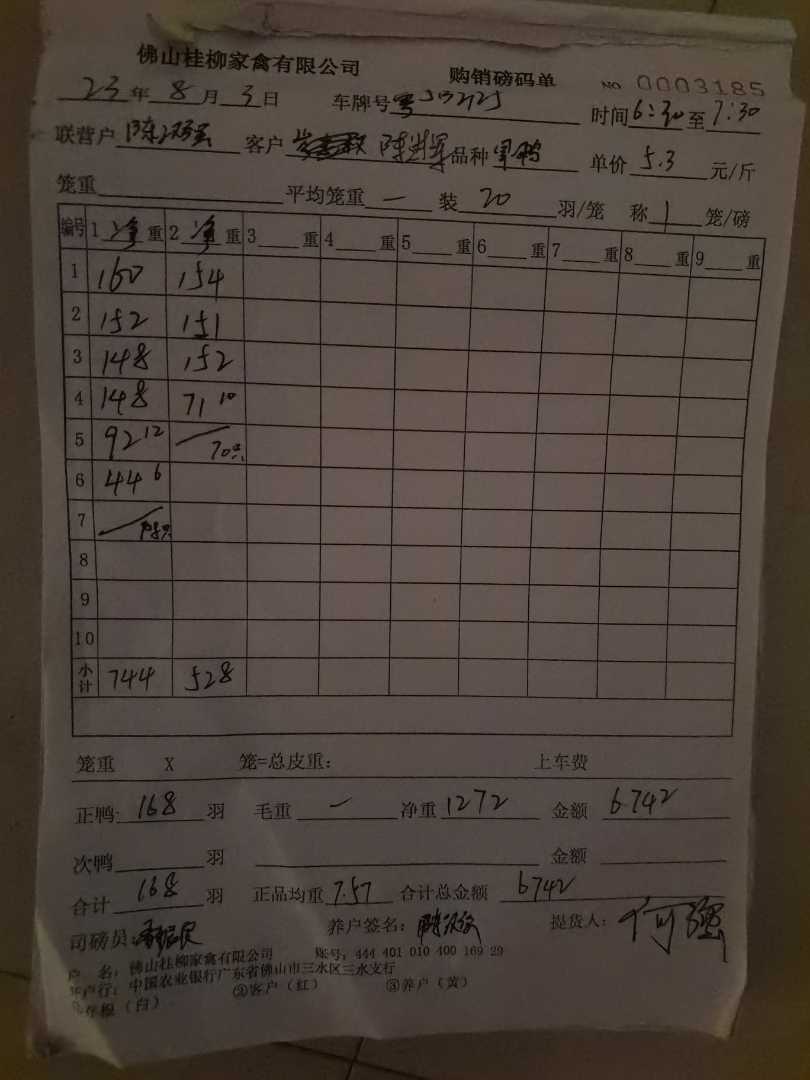 佛山桂柳家禽有限公司 购销磅码单 NO 0003185
23年8月3日 车牌号 时间6:30至7:30
联营户 陈 强 客户 陈 品种 鸭 单价5.3元/斤
笼重 平均笼重 一 装 20 羽/笼 称 1 笼/磅
编号 1 净 重 2 净 重 3 重 4 重 5 重 6 重 7 重 8 重 9 重
1 160 154
2 152 151
3 148 152
4 148 71 10
5 92 12 70只
6 44 6
7
8
9
10
小计 744 528
笼重 X 笼=总皮重: 上车费
正鸭: 168 羽 毛重 一 净重 1272 金额 6742
次鸭 羽 金额
合计 168 羽 正品均重 7.57 合计总金额 6742
司磅员: 养户签名: 提货人: 何强
户 名: 佛山桂柳家禽有限公司 账号: 444 401 010 400 169 29
开户行: 中国农业银行广东省佛山市三水区三水支行
存根(白) ②客户(红) ③养户(黄)